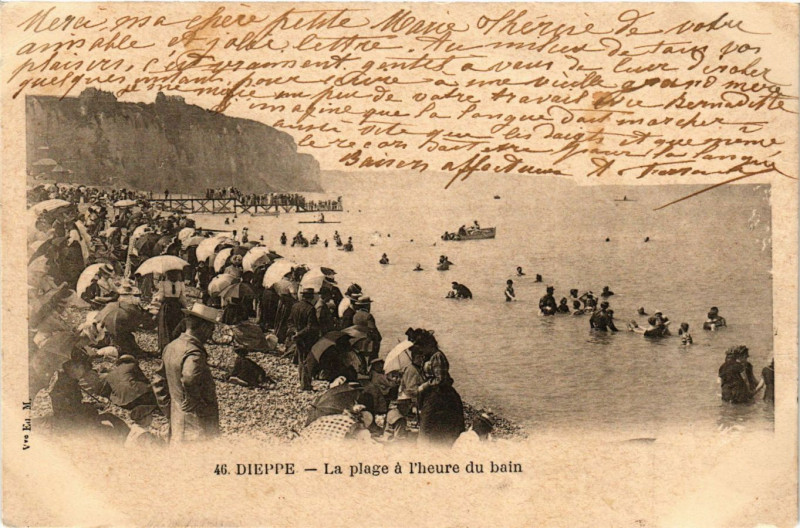 Merci, ma chère petite Marie Thérèse de votre
aimable et jolie lettre. Au milieu de tous vos
plaisirs, c'est vraiment gentil a vous de leur dérober
quelques instants pour écrire a une vieille grand mère
je me un peu de votre travail
imagine que la langue doit marcher
aussi vite que les doigts et que même
le record doit être pour la langue
Baisers affectueux
46. DIEPPE — La plage à l'heure du bain
Vve Ed. M.